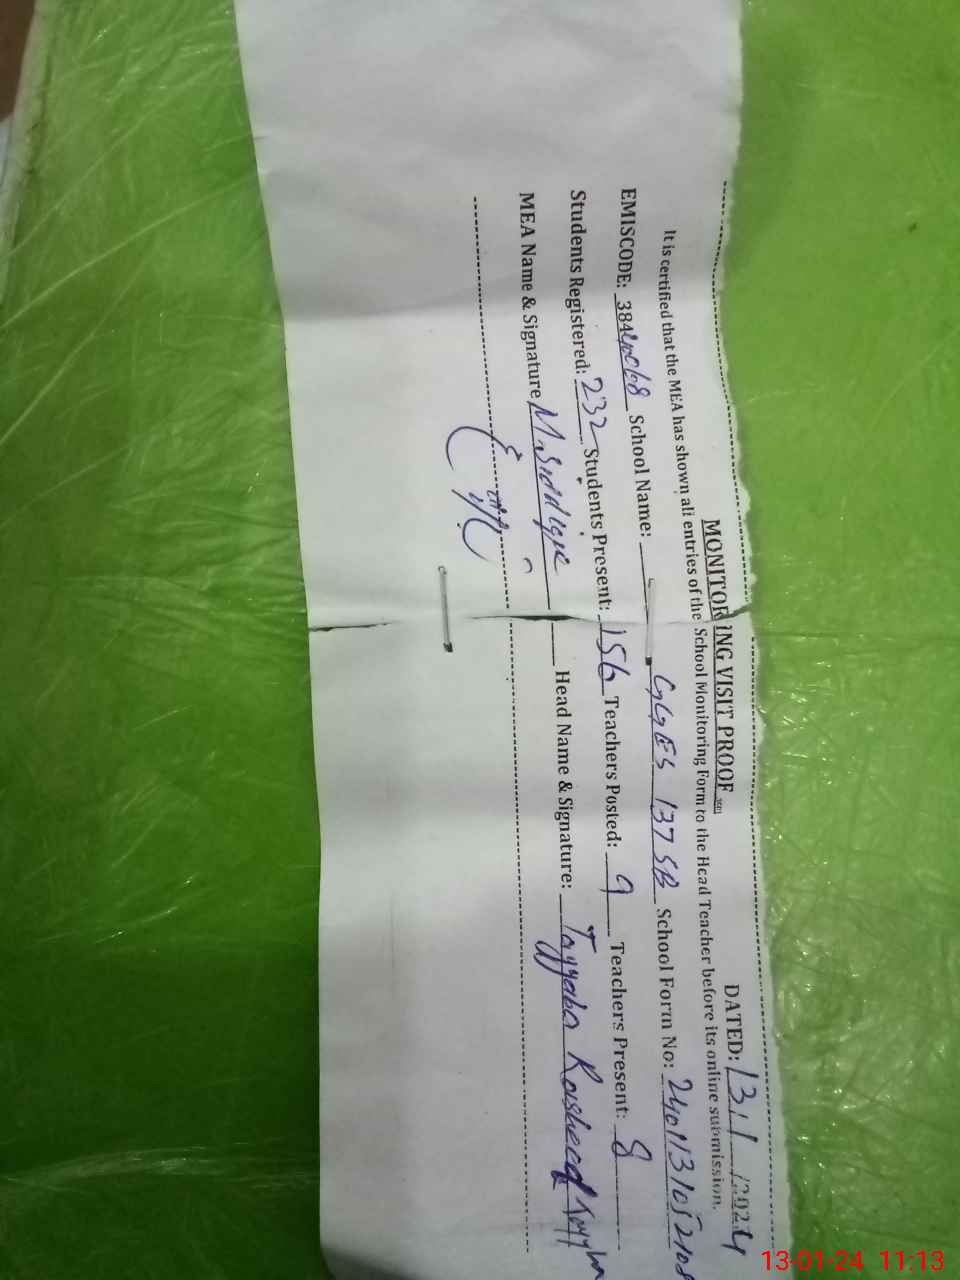 MONITORING VISIT PROOF DATED: 13/1/2024
It is certified that the MEA has shown all entries of the School Monitoring Form to the Head Teacher before its online submission.
EMISCODE: School Name: GGES 137 SB School Form No: 2401131052108
Students Registered: 232 Students Present: 156 Teachers Posted: 9 Teachers Present: 8
MEA Name & Signature M. Siddique Head Name & Signature: Tayyaba Rasheed Tayyba
13-01-24 11:13